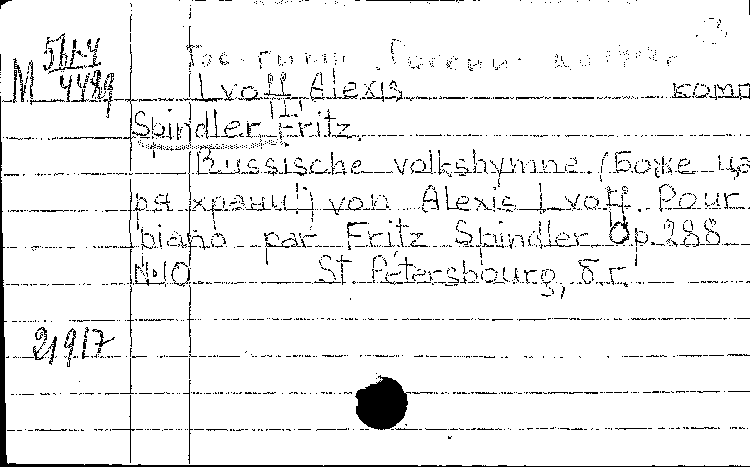 M 561-4
4489
Гос. гимн России до 1917 г.
Lvoff, Alexis комп
Spindler Fritz.
Russische volkshymne. (Боже ца
ря храни!) von Alexis Lvoff. Pour
piano par Fritz Spindler Op. 288
N. 10 St. Pétersbourg, б. г.
21917